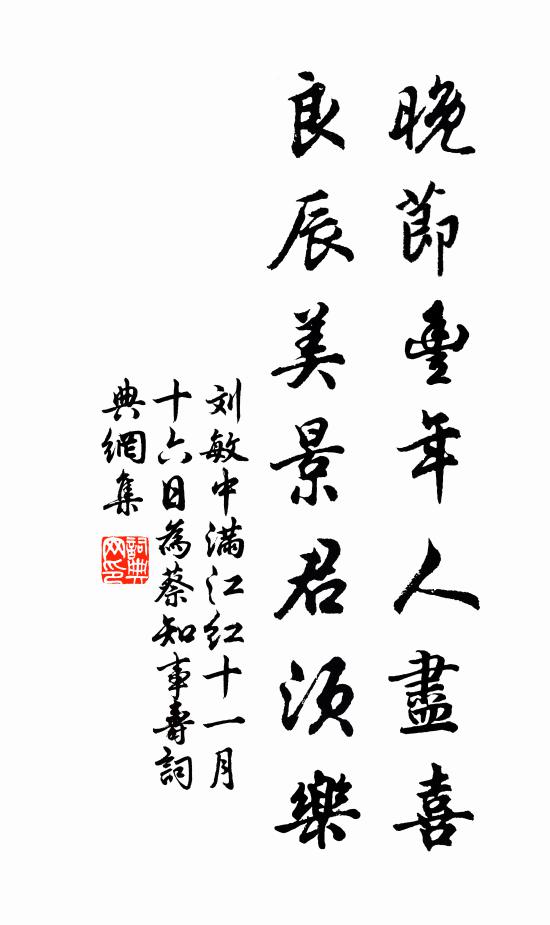 晚節豐年人盡喜
良辰美景君須樂
刘敏中满江红十一月
十六日為蔡知事壽詞
典網集
詞典網印